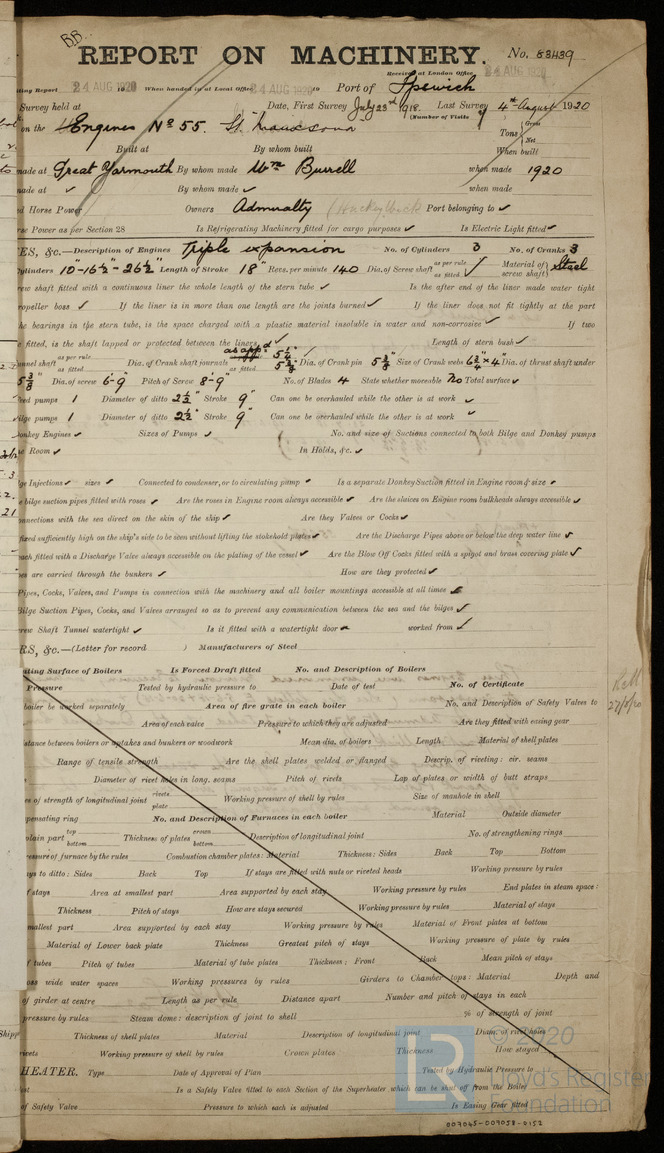 BB.
REPORT ON MACHINERY. No. 53439
Received at London Office 24 AUG 1920
ting Report 24 AUG 1920 19 When handed in at Local Office 24 AUG 1920 19 Port of Ipswich
Survey held at Date, First Survey July 23rd 1918. Last Survey 4th August 1920
(Number of Visits
on the Engines No 55. St.
Tons Gross Net
Built at By whom built When built
made at Great Yarmouth By whom made Wm Burrell when made 1920
made at ✓ By whom made ✓ when made
d Horse Power Owners Admiralty Port belonging to ✓
rse Power as per Section 28 Is Refrigerating Machinery fitted for cargo purposes ✓ Is Electric Light fitted ✓
ES, &c.—Description of Engines Triple expansion No. of Cylinders 3 No. of Cranks 3
ylinders 10"-16½"-26½" Length of Stroke 18" Revs. per minute 140 Dia. of Screw shaft as per rule as fitted ✓ Material of screw shaft Steel
rew shaft fitted with a continuous liner the whole length of the stern tube ✓ Is the after end of the liner made water tight
ropeller boss ✓ If the liner is in more than one length are the joints burned ✓ If the liner does not fit tightly at the part
he bearings in the stern tube, is the space charged with a plastic material insoluble in water and non-corrosive ✓ If two
e fitted, is the shaft lapped or protected between the liners ✓ Length of stern bush ✓
unnel shaft as per rule as fitted Dia. of Crank shaft journals as app'd as fitted 5¼" 5⅜" Dia. of Crank pin 5⅜" Size of Crank webs 6¾"×4" Dia. of thrust shaft under
5⅜" Dia. of screw 6'-9" Pitch of Screw 8'-9" No. of Blades 4 State whether moveable No Total surface ✓
eed pumps 1 Diameter of ditto 2½" Stroke 9" Can one be overhauled while the other is at work ✓
ilge pumps 1 Diameter of ditto 2½" Stroke 9" Can one be overhauled while the other is at work ✓
onkey Engines ✓ Sizes of Pumps ✓ No. and size of Suctions connected to both Bilge and Donkey pumps
e Room ✓ In Holds, &c. ✓
lge Injections ✓ sizes ✓ Connected to condenser, or to circulating pump ✓ Is a separate Donkey Suction fitted in Engine room & size ✓
e bilge suction pipes fitted with roses ✓ Are the roses in Engine room always accessible ✓ Are the sluices on Engine room bulkheads always accessible ✓
onnections with the sea direct on the skin of the ship ✓ Are they Valves or Cocks ✓
fixed sufficiently high on the ship's side to be seen without lifting the stokehold plates ✓ Are the Discharge Pipes above or below the deep water line ✓
each fitted with a Discharge Valve always accessible on the plating of the vessel ✓ Are the Blow Off Cocks fitted with a spigot and brass covering plate ✓
es are carried through the bunkers ✓ How are they protected ✓
Pipes, Cocks, Valves, and Pumps in connection with the machinery and all boiler mountings accessible at all times ✓
Bilge Suction Pipes, Cocks, and Valves arranged so as to prevent any communication between the sea and the bilges ✓
rew Shaft Tunnel watertight ✓ Is it fitted with a watertight door ✓ worked from ✓
RS, &c.—(Letter for record ) Manufacturers of Steel
ating Surface of Boilers Is Forced Draft fitted No. and Description of Boilers
Pressure Tested by hydraulic pressure to Date of test No. of Certificate
boiler be worked separately Area of fire grate in each boiler No. and Description of Safety Valves to
Area of each valve Pressure to which they are adjusted Are they fitted with easing gear
istance between boilers or uptakes and bunkers or woodwork Mean dia. of boilers Length Material of shell plates
Range of tensile strength Are the shell plates welded or flanged Descrip. of riveting: cir. seams
Diameter of rivet holes in long. seams Pitch of rivets Lap of plates or width of butt straps
es of strength of longitudinal joint rivets plate Working pressure of shell by rules Size of manhole in shell
pensating ring No. and Description of Furnaces in each boiler Material Outside diameter
plain part top bottom Thickness of plates crown bottom Description of longitudinal joint No. of strengthening rings
ressure of furnace by the rules Combustion chamber plates: Material Thickness: Sides Back Top Bottom
ays to ditto: Sides Back Top If stays are fitted with nuts or riveted heads Working pressure by rules
f stays Area at smallest part Area supported by each stay Working pressure by rules End plates in steam space:
Thickness Pitch of stays How are stays secured Working pressure by rules Material of stays
mallest part Area supported by each stay Working pressure by rules Material of Front plates at bottom
Material of Lower back plate Thickness Greatest pitch of stays Working pressure of plate by rules
f tubes Pitch of tubes Material of tube plates Thickness: Front Back Mean pitch of stays
oss wide water spaces Working pressures by rules Girders to Chamber tops: Material Depth and
of girder at centre Length as per rule Distance apart Number and pitch of stays in each
pressure by rules Steam dome: description of joint to shell % of strength of joint
Thickness of shell plates Material Description of longitudinal joint Diam. of rivet holes
rivets Working pressure of shell by rules Crown plates Thickness How stayed
HEATER. Type Date of Approval of Plan Tested by Hydraulic Pressure to
Is a Safety Valve fitted to each Section of the Superheater which can be shut off from the Boiler
of Safety Valve Pressure to which each is adjusted Is Easing Gear fitted
27/8/20
LR © 2020
Lloyd's Register
Foundation
007045-007058-0152